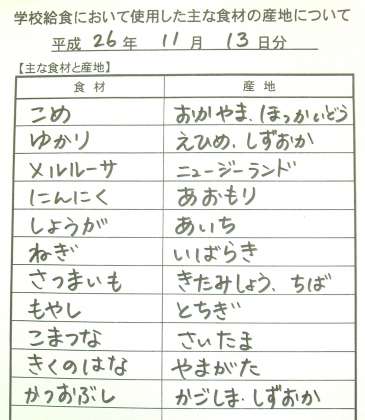 学校給食において使用した主な食材の産地について
平成 26 年 11 月 13 日分
【主な食材と産地】
食材 産地
こめ おかやま、ほっかいどう
ゆかり えひめ、しずおか
メルルーサ ニュージーランド
にんにく あおもり
しょうが あいち
ねぎ いばらき
さつまいも きたみしょう、ちば
もやし とちぎ
こまつな さいたま
きくのはな やまがた
かつおぶし かごしま・しずおか